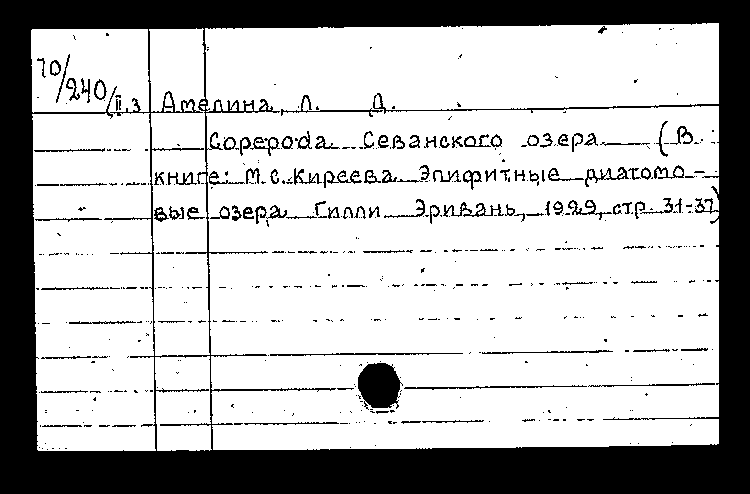 70/240/II.3 Амелина, Л. Д.
Copepoda Севанского озера (В
книге: М.С. Киреева Эпифитные диатомо-
вые озера Гилли Эривань, 1929, стр. 31-37)